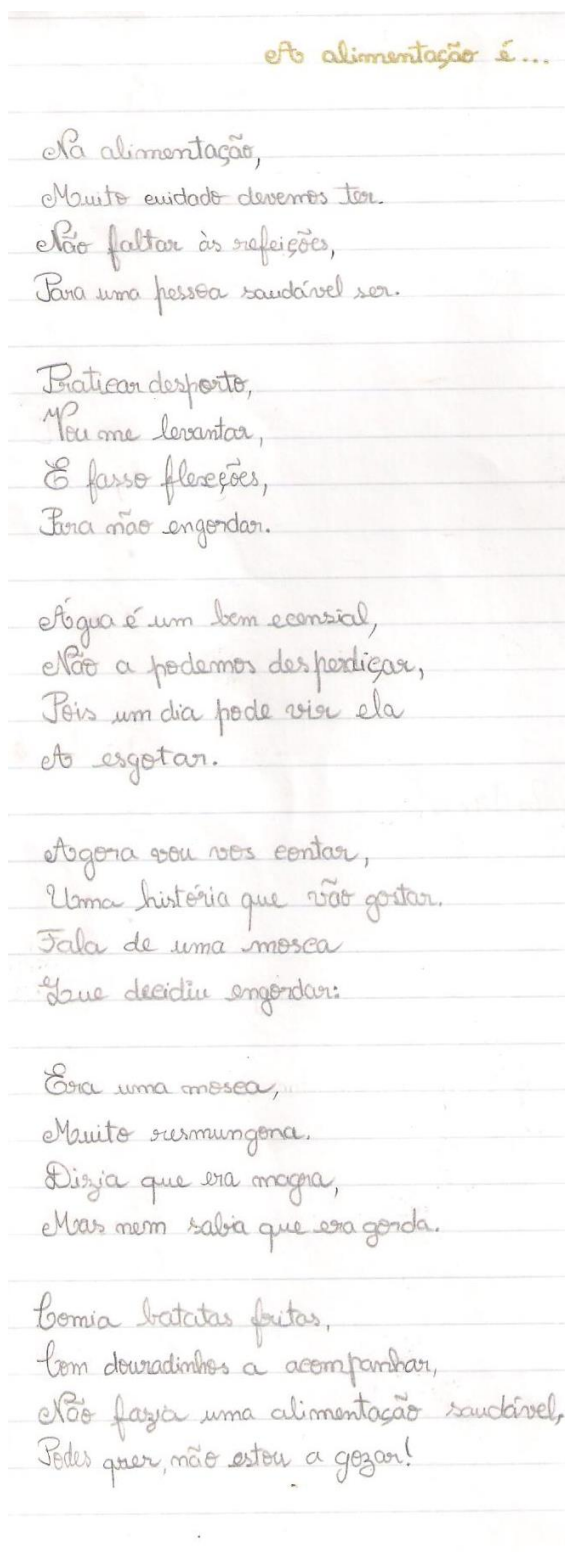 A alimentação é...
Na alimentação,
Muito cuidado devemos ter.
Não faltar às refeições,
Para uma pessoa saudável ser.
Praticar desporto,
Vou me levantar,
E fasso flexeções,
Para não engordar.
Água é um bem ecensial,
Não a podemos desperdiçar,
Pois um dia pode vir ela
A esgotar.
Agora vou vos contar,
Uma história que vão gostar.
Fala de uma mosca
Que decidiu engordar:
Era uma mosca,
Muito resmungona.
Dizia que era magra,
Mas nem sabia que era gorda.
Comia batatas fritas,
Com douradinhos a acompanhar,
Não fazia uma alimentação saudável,
Podes quer, não estou a gozar!